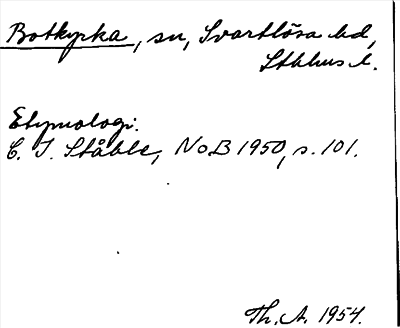 Botkyrka, sn, Svartlösa hd,
Sthlms l.
Etymologi:
C. I. Ståhle, NoB 1950, s. 101.
Th. A. 1954.